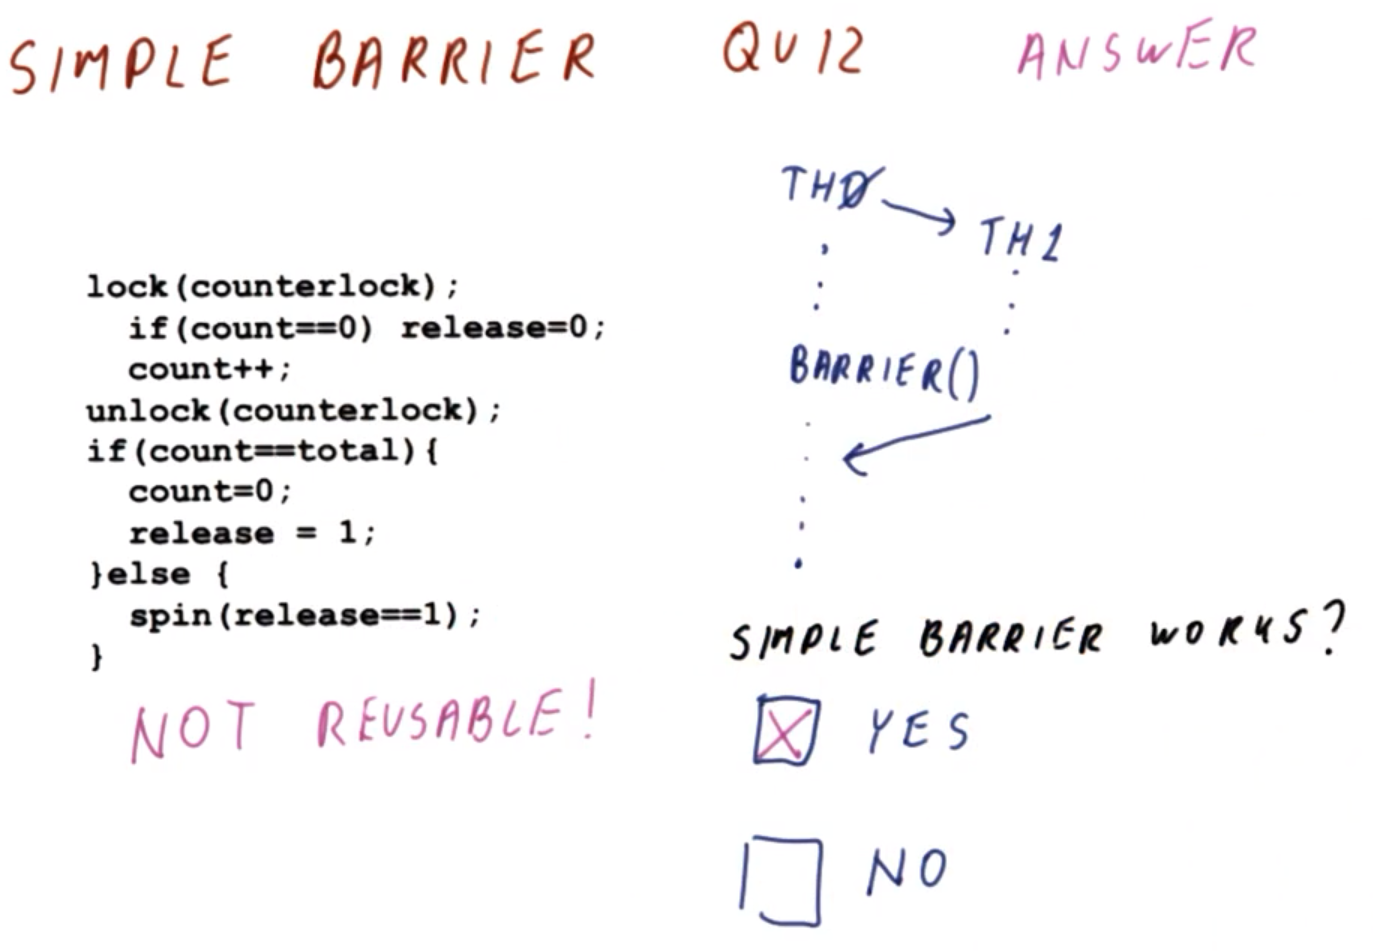 SIMPLE BARRIER QUIZ ANSWER
lock(counterlock);
if(count==0) release=0;
count++;
unlock(counterlock);
if(count==total){
count=0;
release = 1;
}else {
spin(release==1);
}
NOT REUSABLE!
TH0
TH1
BARRIER()
SIMPLE BARRIER WORKS?
YES
NO